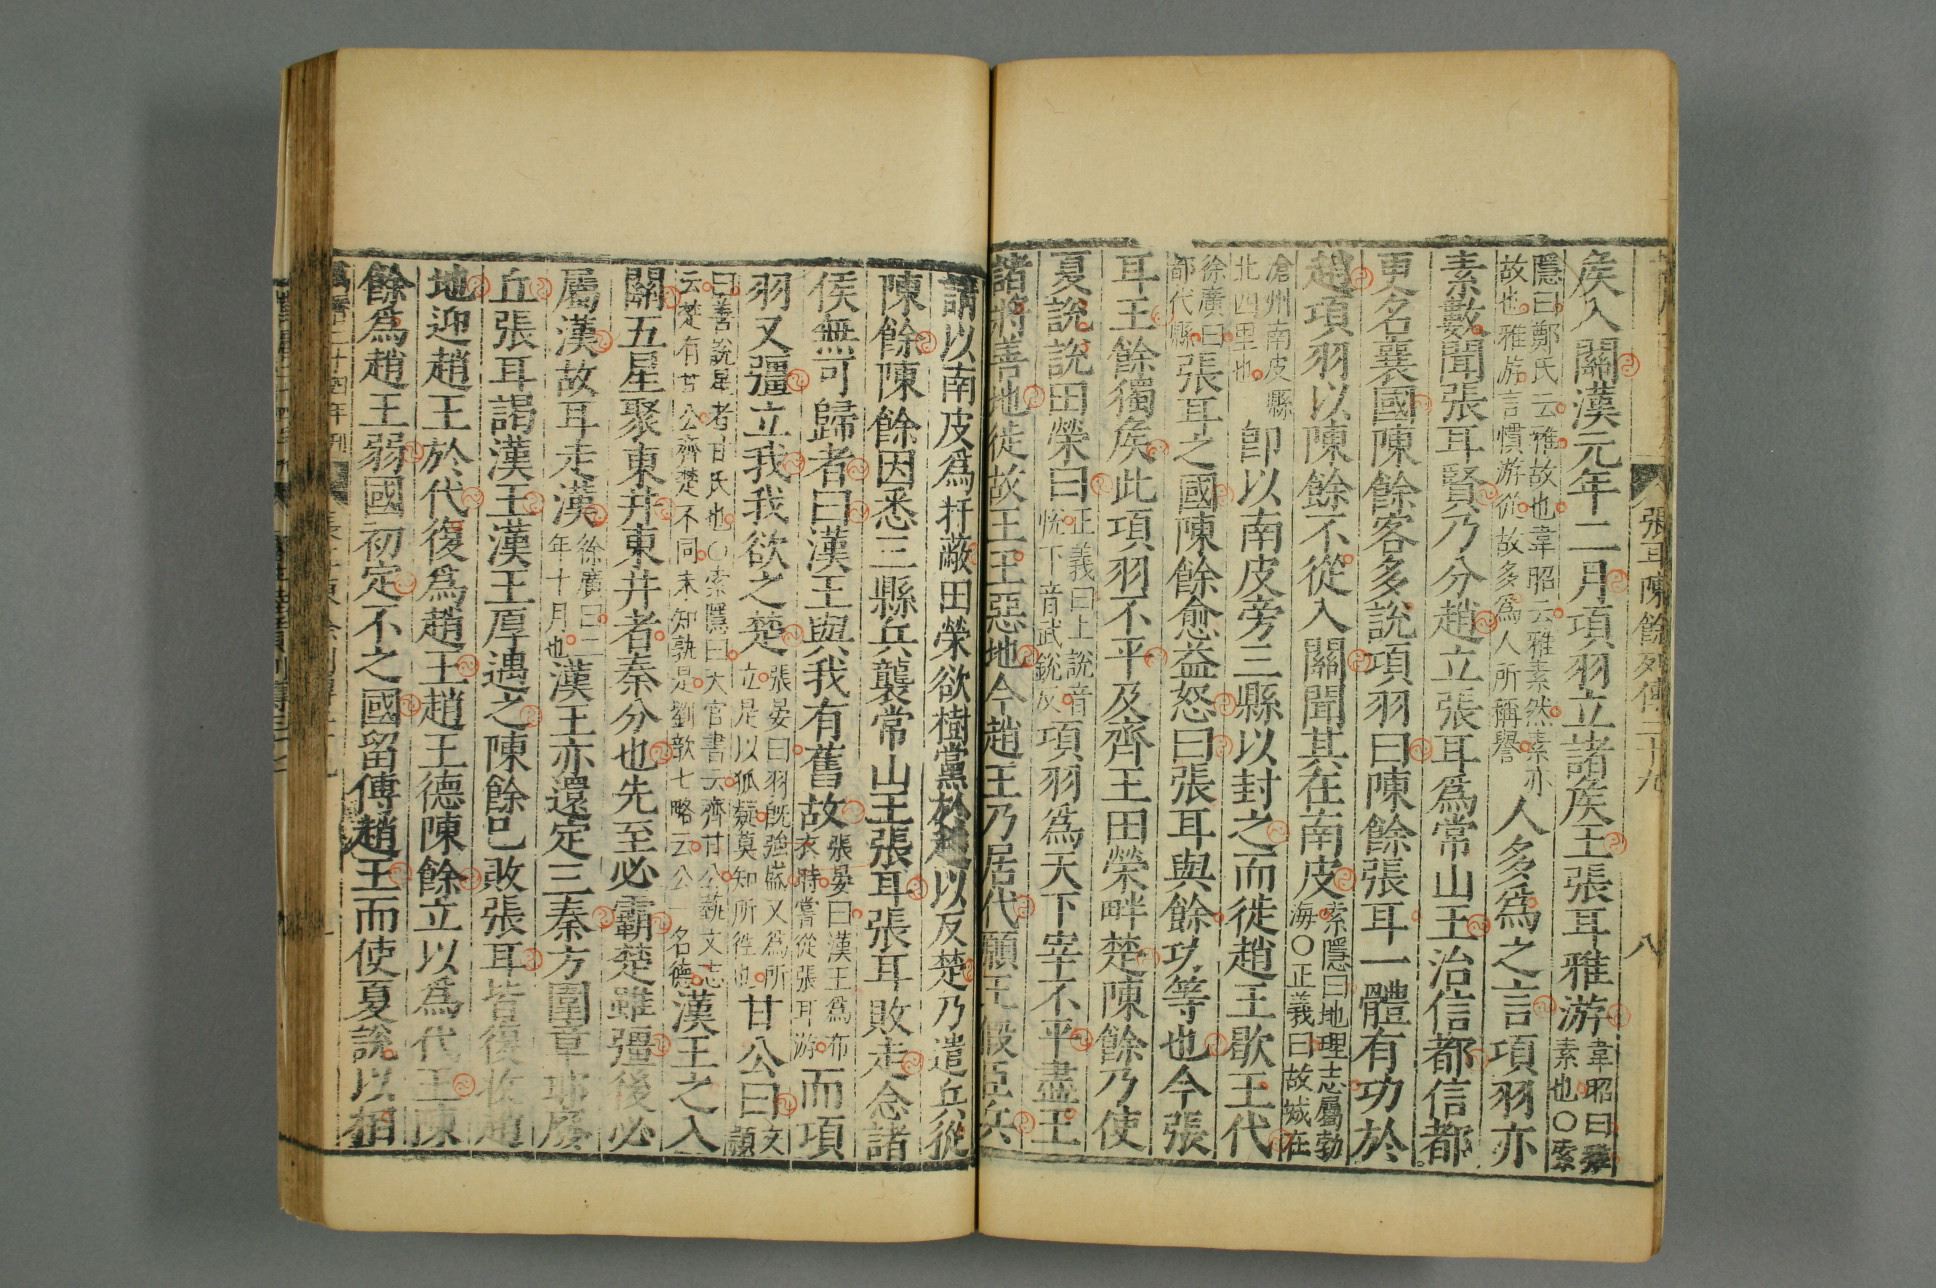 張耳陳餘列傳二十九
八
矦入關漢元年二月項羽立諸矦王張耳雅游韋昭曰雅素也○索
隱曰鄭氏云雅故也韋昭云雅素然素亦故也雅游言慣游從故多爲人所稱譽人多爲之言項羽亦
素數聞張耳賢乃分趙立張耳爲常山王治信都信都
更名襄國陳餘客多說項羽曰陳餘張耳一體有功於
趙項羽以陳餘不從入關聞其在南皮索隱曰地理志屬勃海○正義曰故城在
滄州南皮縣北四里也卽以南皮旁三縣以封之而徙趙王歇王代
徐廣曰都代縣張耳之國陳餘愈益怒曰張耳與餘功等也今張
耳王餘獨矦此項羽不平及齊王田榮畔楚陳餘乃使
夏說說田榮曰正義曰上說音悅下音式銳反項羽爲天下宰不平盡王
諸將善地徙故王王惡地今趙王乃居代願王假臣兵
請以南皮爲扞蔽田榮欲樹黨於趙以反楚乃遣兵從
陳餘陳餘因悉三縣兵襲常山王張耳張耳敗走念諸
侯無可歸者曰漢王與我有舊故張晏曰漢王爲布衣時嘗從張耳游而項
羽又彊立我我欲之楚張晏曰羽旣強盛又爲所立是以狐疑莫知所徃也甘公曰文穎
曰善說星者甘氏也○索隱曰天官書云齊甘公藝文志云楚有甘公齊楚不同未知孰是劉歆七略云公一名德漢王之入
關五星聚東井東井者秦分也先至必霸楚雖彊後必
屬漢故耳走漢徐廣曰二年十月也漢王亦還定三秦方圍章邯廢
丘張耳謁漢王漢王厚遇之陳餘已敗張耳皆復收趙
地迎趙王於代復爲趙王趙王德陳餘立以爲代王陳
餘爲趙王弱國初定不之國留傅趙王而使夏說以相